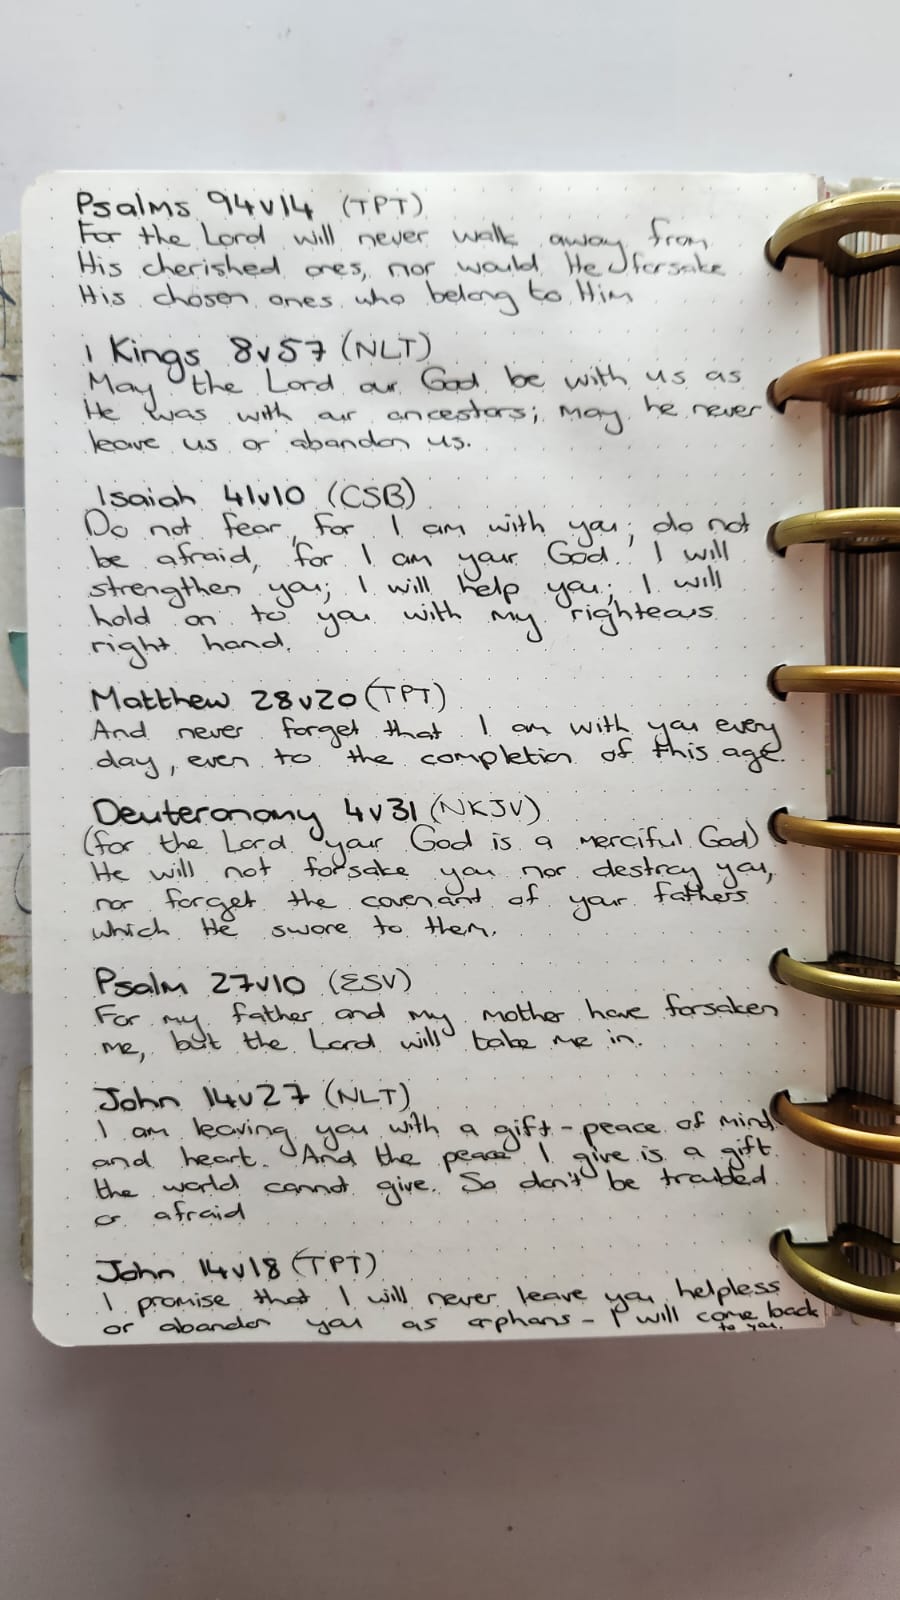 Psalms 94v14 (TPT)
For the Lord will never walk away from
His cherished ones, nor would He forsake
His chosen ones who belong to Him
1 Kings 8v57 (NLT)
May the Lord our God be with us as
He was with our ancestors; may he never
leave us or abandon us.
Isaiah 41v10 (CSB)
Do not fear, for I am with you; do not
be afraid, for I am your God. I will
strengthen you; I will help you; I will
hold on to you with my righteous
right hand.
Matthew 28v20 (TPT)
And never forget that I am with you every
day, even to the completion of this age.
Deuteronomy 4v31 (NKJV)
(for the Lord your God is a merciful God)
He will not forsake you nor destroy you,
nor forget the covenant of your fathers
which He swore to them.
Psalm 27v10 (ESV)
For my father and my mother have forsaken
me, but the Lord will take me in.
John 14v27 (NLT)
I am leaving you with a gift - peace of mind
and heart. And the peace I give is a gift
the world cannot give. So don't be troubled
or afraid
John 14v18 (TPT)
I promise that I will never leave you helpless
or abandon you as orphans - I will come back
to you.